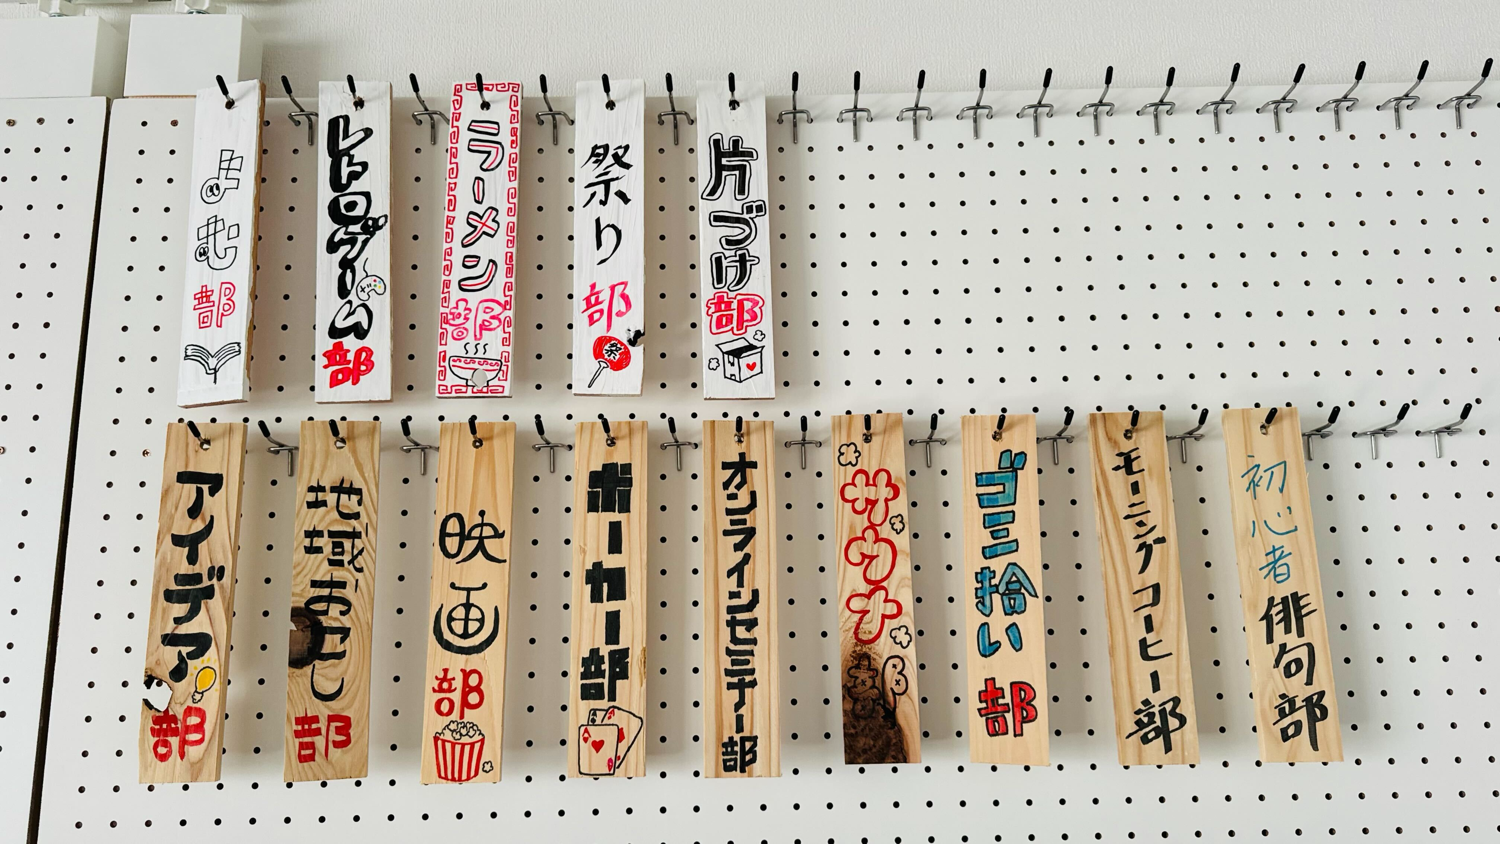 よむ部
レトロゲーム部
ラーメン部
祭り部
祭
片づけ部
アイデア部
地域おこし部
映画部
ポーカー部
A
A
A
オンラインセミナー部
サウナ部
ゴミ拾い部
モーニングコーヒー部
初心者俳句部